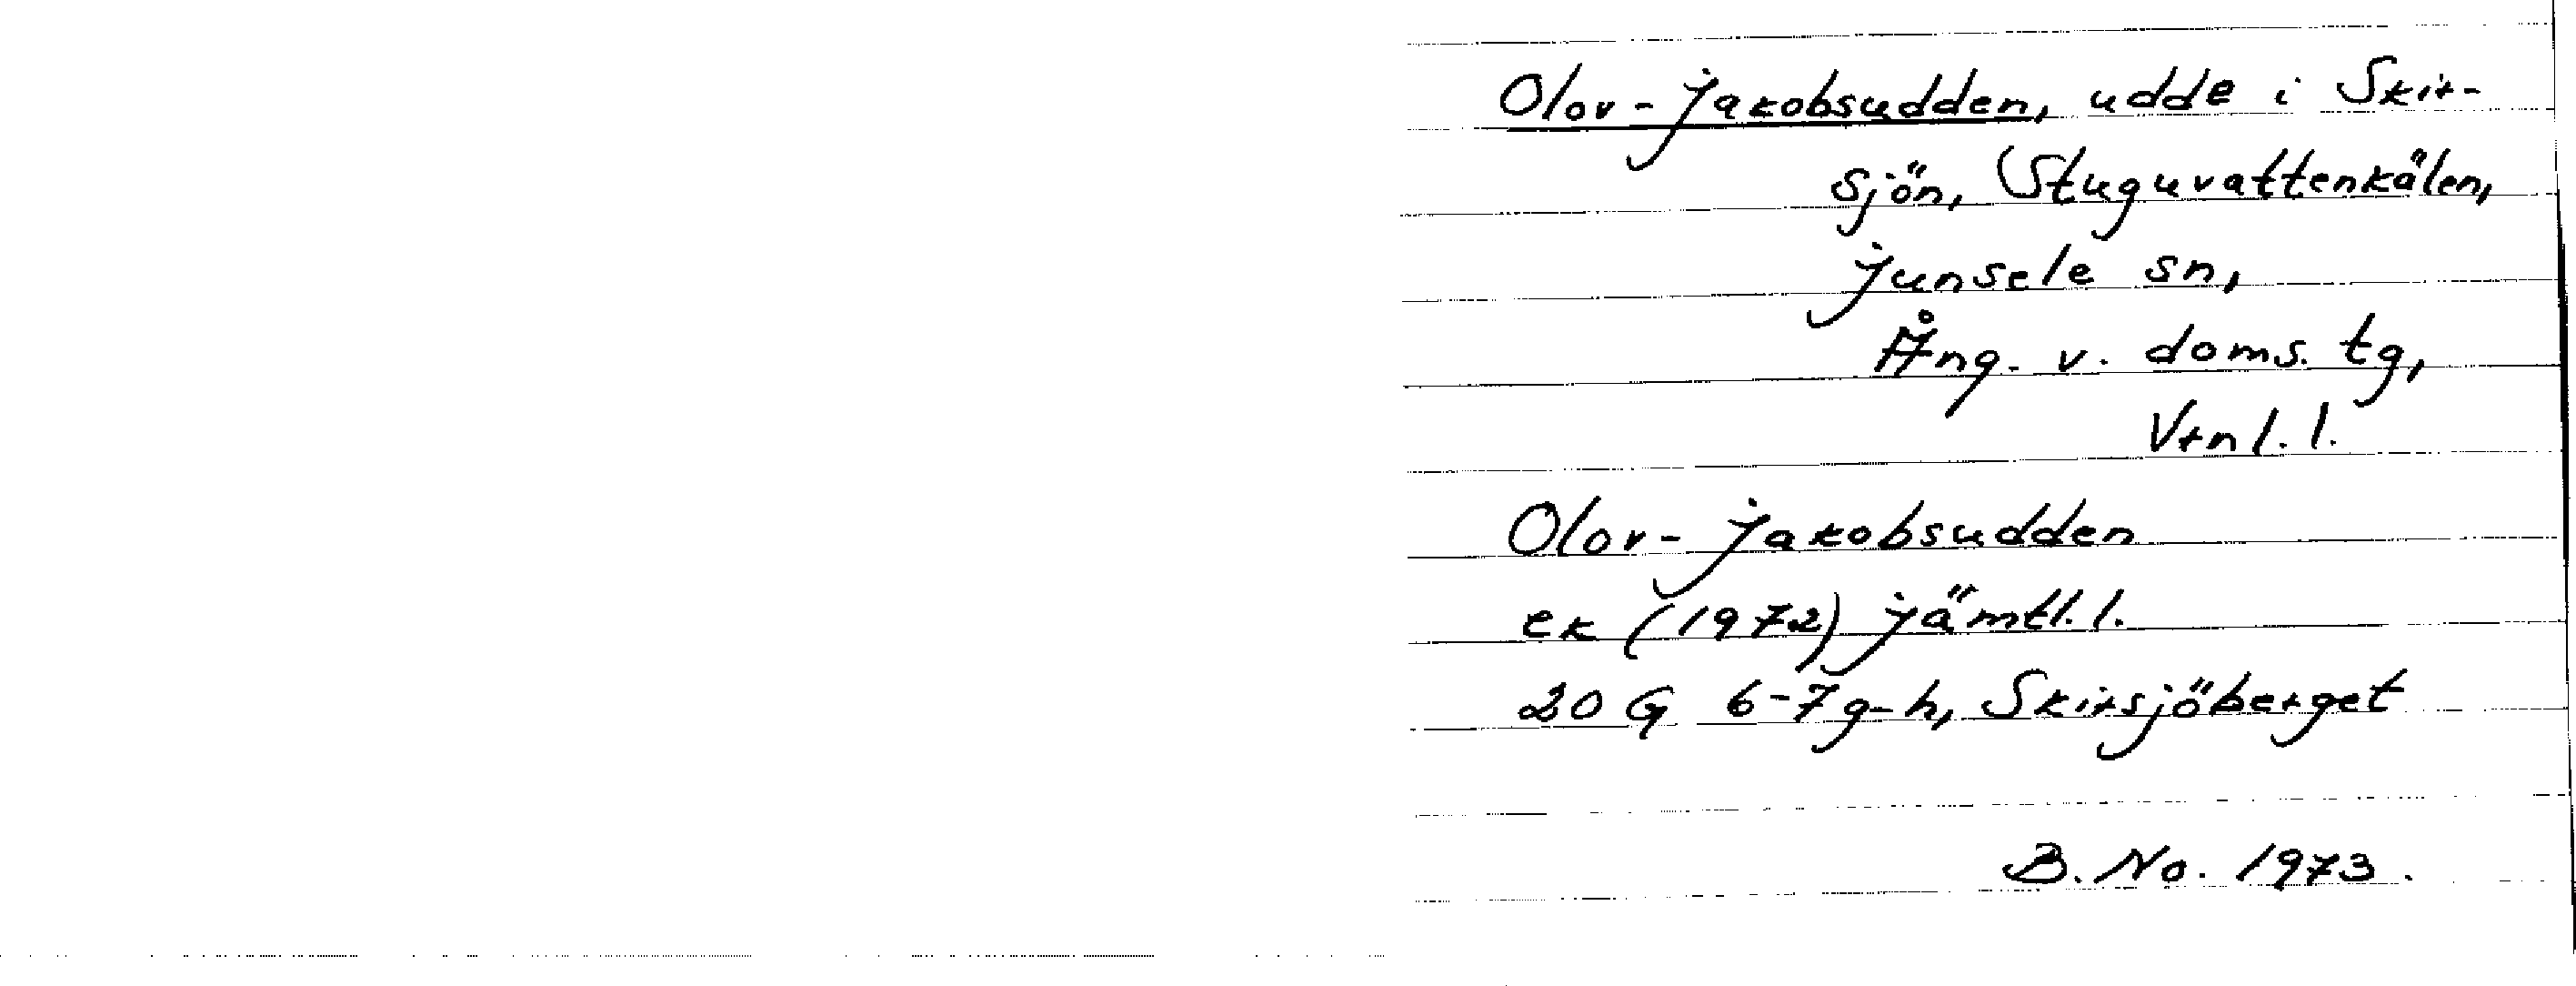 Olov-Jakobsudden, udde i Skir-
sjön, Stuguvattenkälen,
Junsele sn,
Ång. v. doms. tg,
Vrnl. l.
Olov-Jakobsudden
ek (1972) Jämtl. l.
20 G 6-7g-h, Skirsjöberget
B. No. 1973.